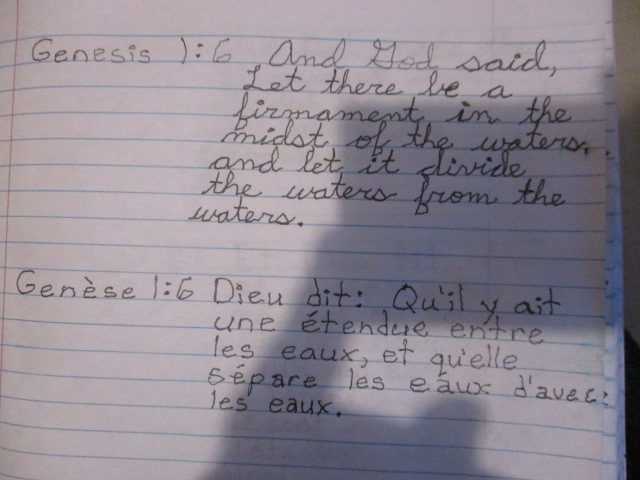 Genesis 1:6 And God said,
Let there be a
firmament in the
midst of the waters,
and let it divide
the waters from the
waters.
Genèse 1:6 Dieu dit: Qu'il y ait
une étendue entre
les eaux, et qu'elle
sépare les eaux d'avec
les eaux.